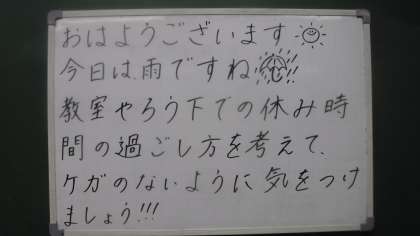 おはようございます
今日は、雨ですね
教室やろう下での休み時
間の過ごし方を考えて、
ケガのないように気をつけ
ましょう!!!